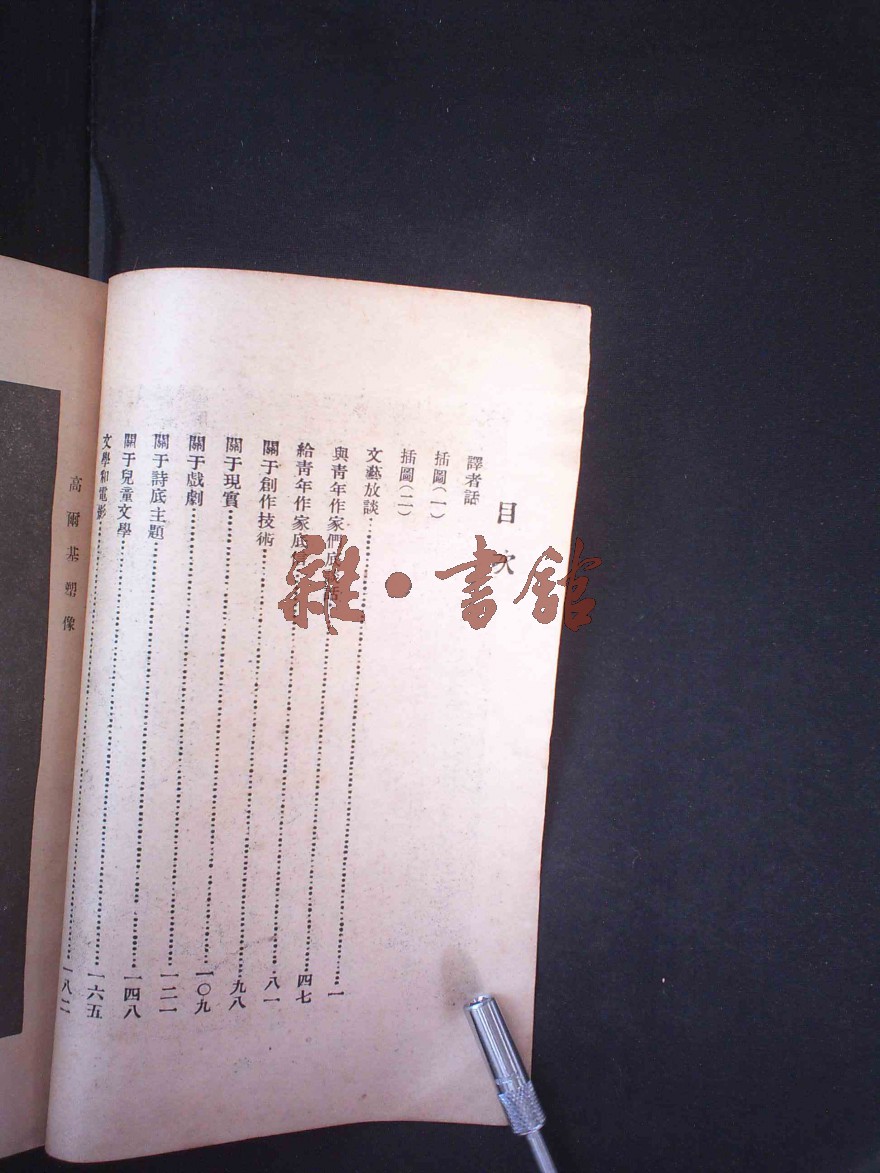 目次
譯者話
插圖(一)
插圖(二)
文藝放談……一
與青年作家們底談話……四七
給青年作家底……八一
關于創作技術……九八
關于現實……一〇九
關于戲劇……一二一
關于詩底主題……一四八
關于兒童文學……一六五
文學和電影……一八二
高爾基塑像
雜·書館